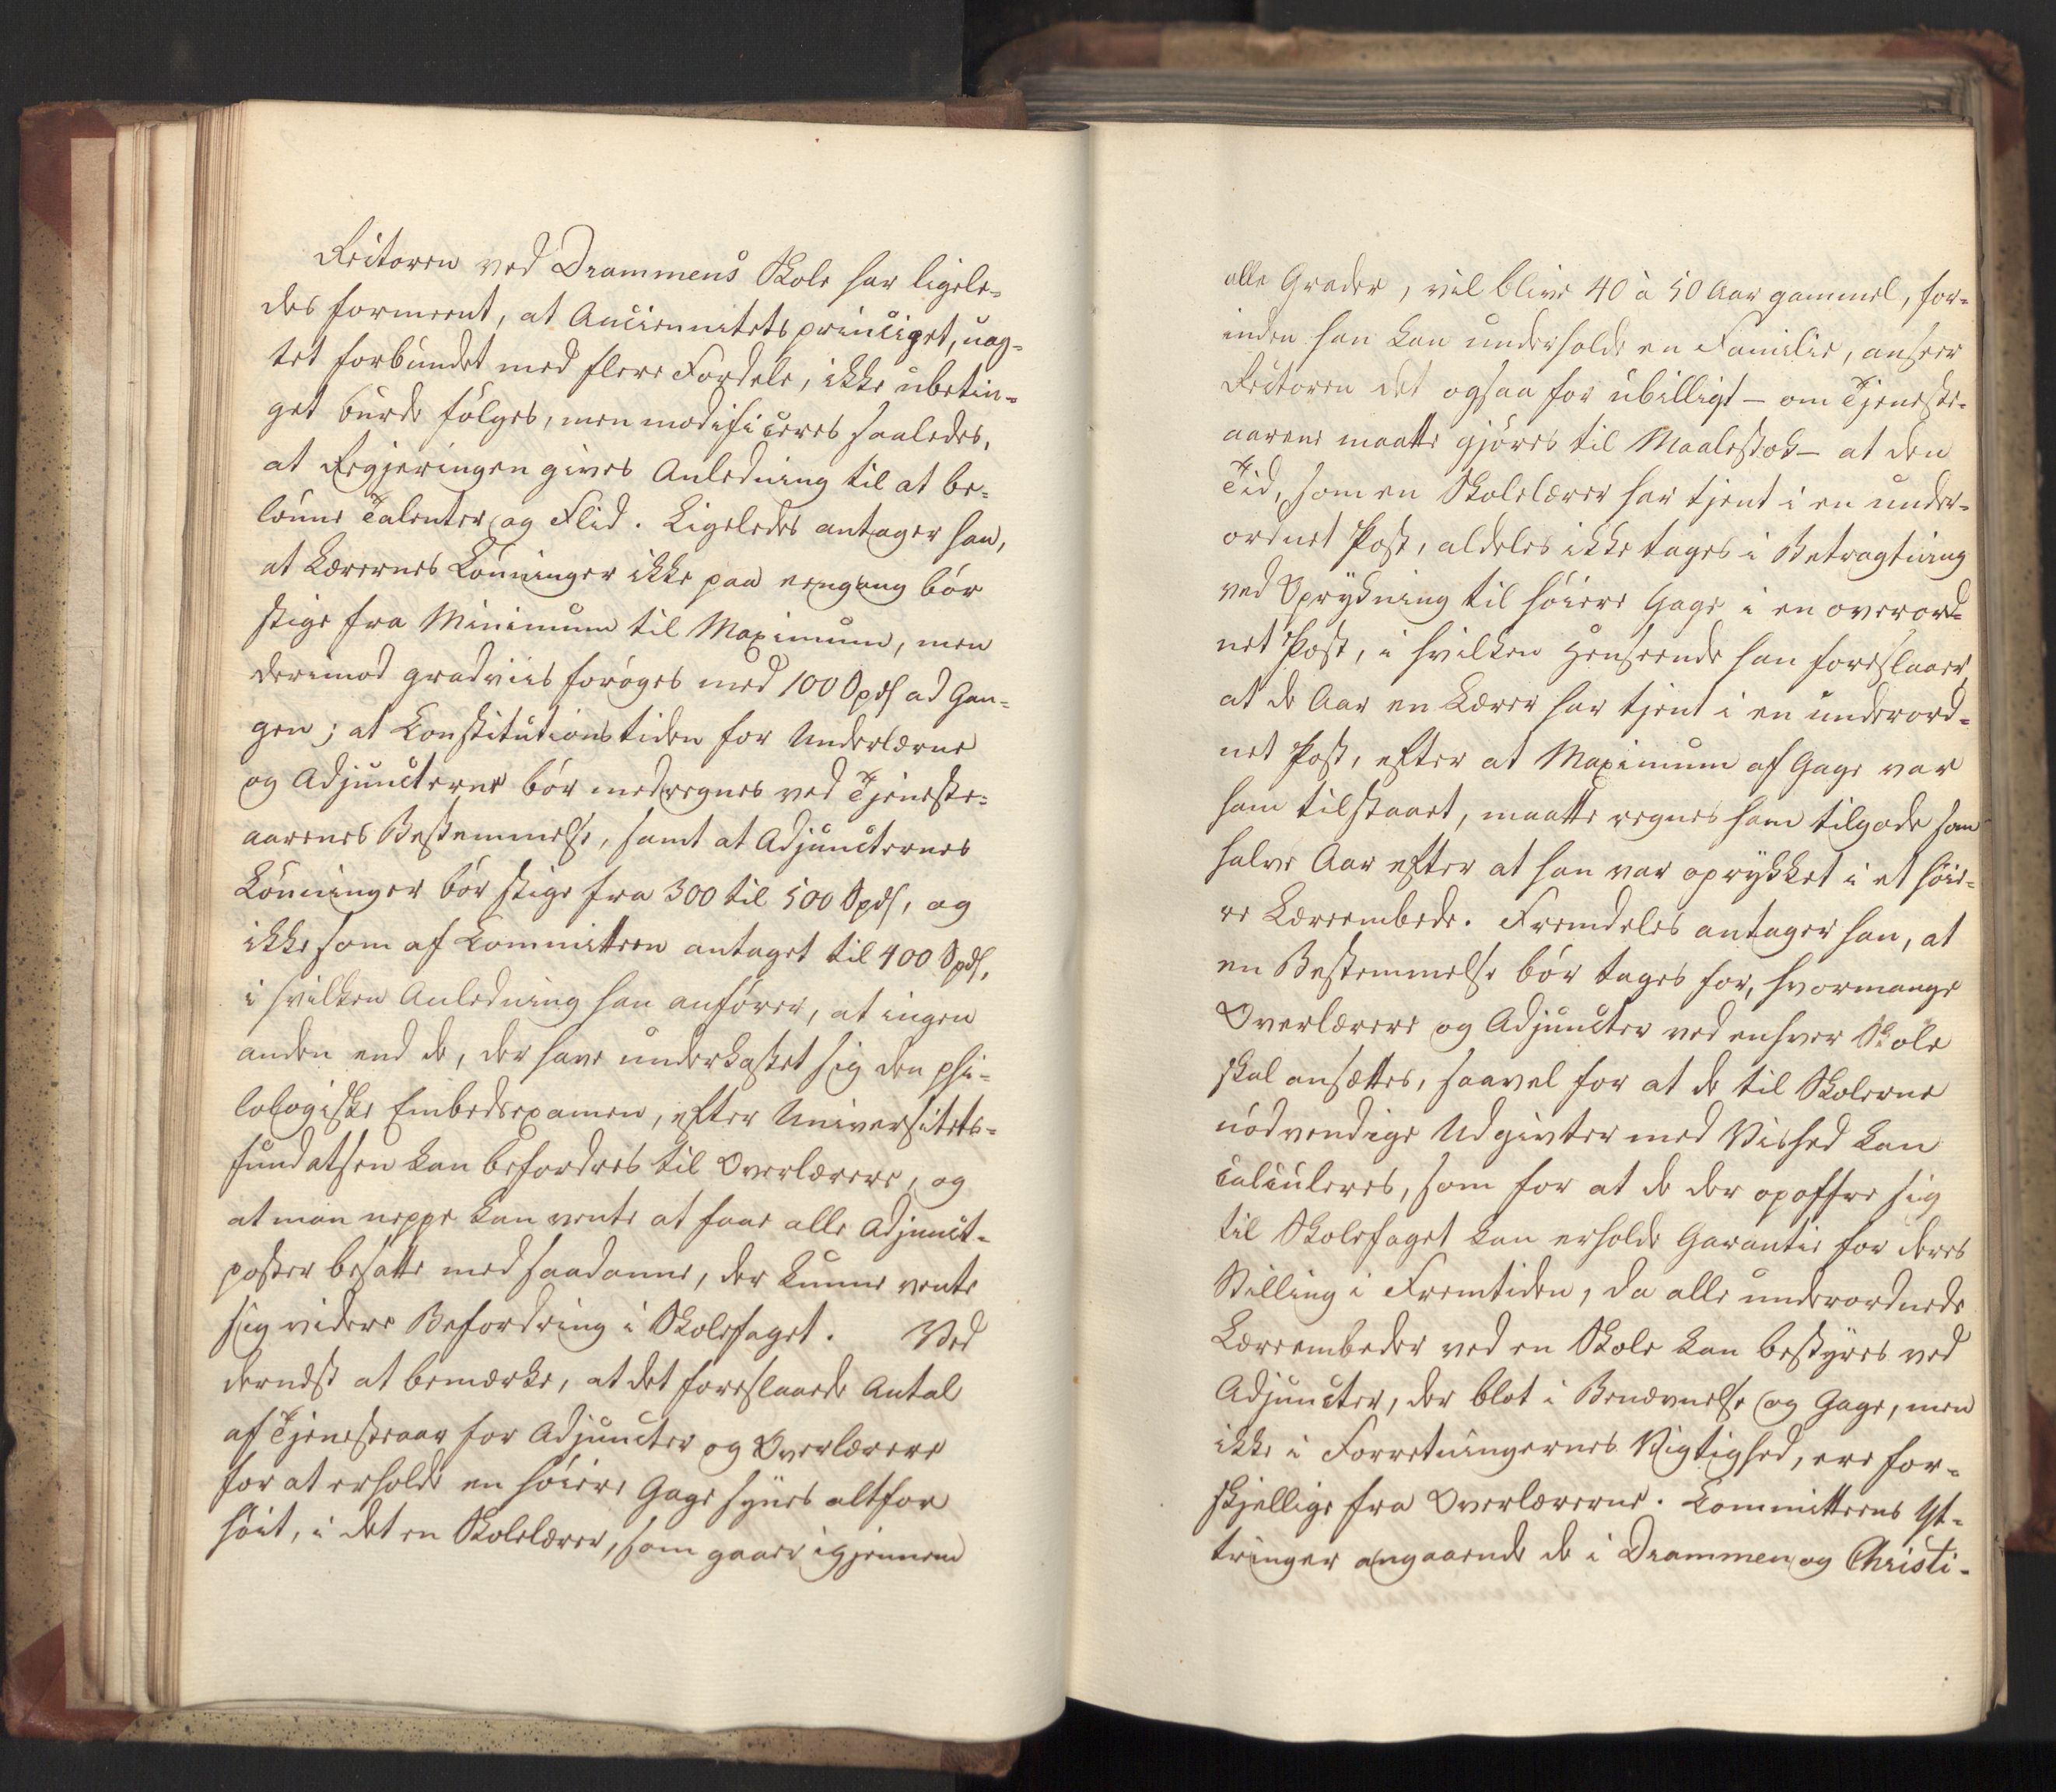 Rectoren ved Drammens Skole har ligele-
des formeent, at Anciennitetsprincipet, uag-
tet forbundet med flere Fordele, ikke ubetin-
get burde følges, men modificeres saaledes,
at Regjeringen gives Anledning til at be-
lønne Talenter og Flid. Ligeledes antager han,
at Lærernes Lønninger ikke paa eengang bør
stige fra Minimum til Maximum, men
derimod gradviis forøges med 100 Spd ad Gan-
gen; at Constitutionstiden for Underlærerne
og Adjuncterne bør medregnes ved Tjeneste-
aarenes Bestemmelse, samt at Adjuncternes
Lønninger bør stige fra 300 til 500 Spd, og
ikke som af Committeen antaget til 400 Spd,
i hvilken Anledning han anfører, at ingen
anden end de, der have underkastet sig den phi-
lologiske Embedsexamen, efter Universitets-
fundatsen kan befordres til Overlærere, og
at man neppe kan vente at faae alle Adjunct-
poster besatte med saadanne, der kunne vente
sig videre Befordring i Skolefaget. Ved
dernæst at bemærke, at det foreslaaede Antal
af Tjenesteaar for Adjuncter og Overlærere
for at erholde en høiere Gage synes altfor
høit, i det en Skolelærer, som gaaer igjennem
alle Grader, vil blive 40 à 50 Aar gammel, for-
inden han kan underholde en Familie, anseer
Rectoren det ogsaa for ubilligt – om Tjeneste-
aarene maatte gjøres til Maalestok – at den
Tid, som en Skolelærer har tjent i en under-
ordnet Post, aldeles ikke tages i Betragtning
ved Oprykning til høiere Gage i en overord-
net Post, i hvilken Henseende han foreslaaer,
at de Aar en Lærer har tjent i en underord-
net Post, efter at Maximum af Gage var
ham tilstaaet, maatte regnes ham tilgode som
halve Aar efter at han var oprykket i et høie-
re Lærerembede. Fremdeles antager han, at
en Bestemmelse bør tages for, hvormange
Overlærere og Adjuncter ved enhver Skole
skal ansættes, saavel for at de til Skolerne
nødvendige Udgivter med Vished kan
calculeres, som for at de der opoffre sig
til Skolefaget kan erholde Garantie for deres
Stilling i Fremtiden, da alle underordnede
Lærerembeder ved en Skole kan bestyres ved
Adjuncter, der blot i Benævnelse og Gage, men
ikke i Forretningernes Vigtighed, ere for-
skjellige fra Overlærerne. Committeens Yt-
tringer angaaende de i Drammen og Christi-